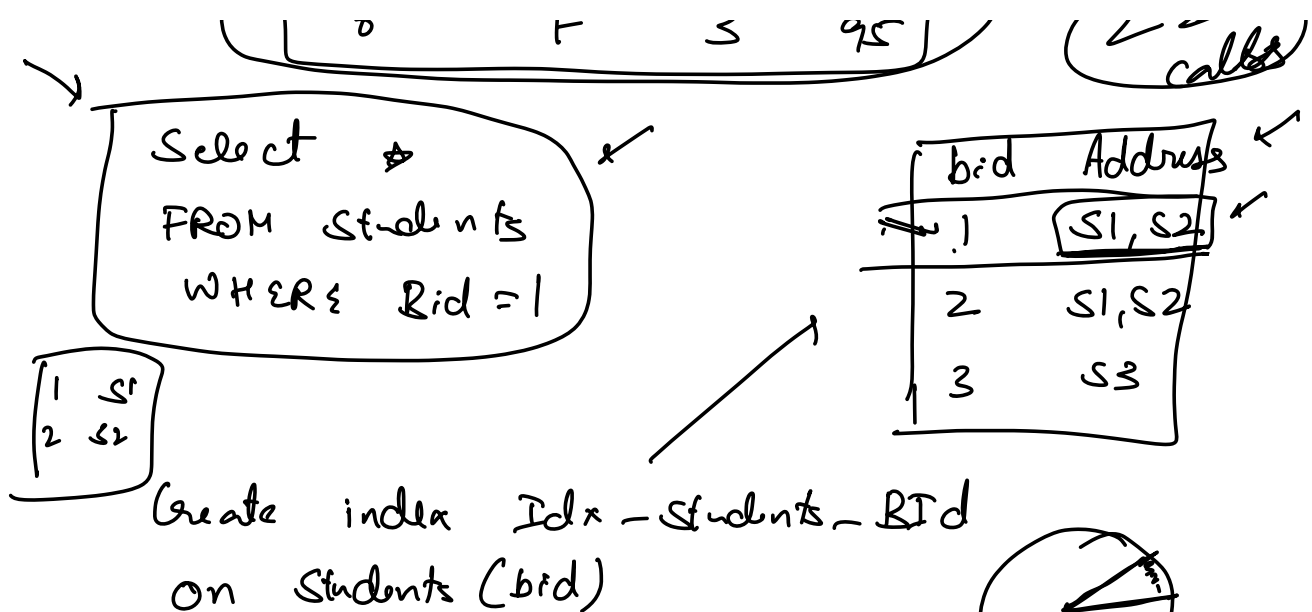 calls
Select *
FROM Students
WHERE Bid = 1
bid Address
1 S1, S2
2 S1, S2
3 S3
1 S1
2 S2
Create index Idx_Students_BId
on Students (bid)